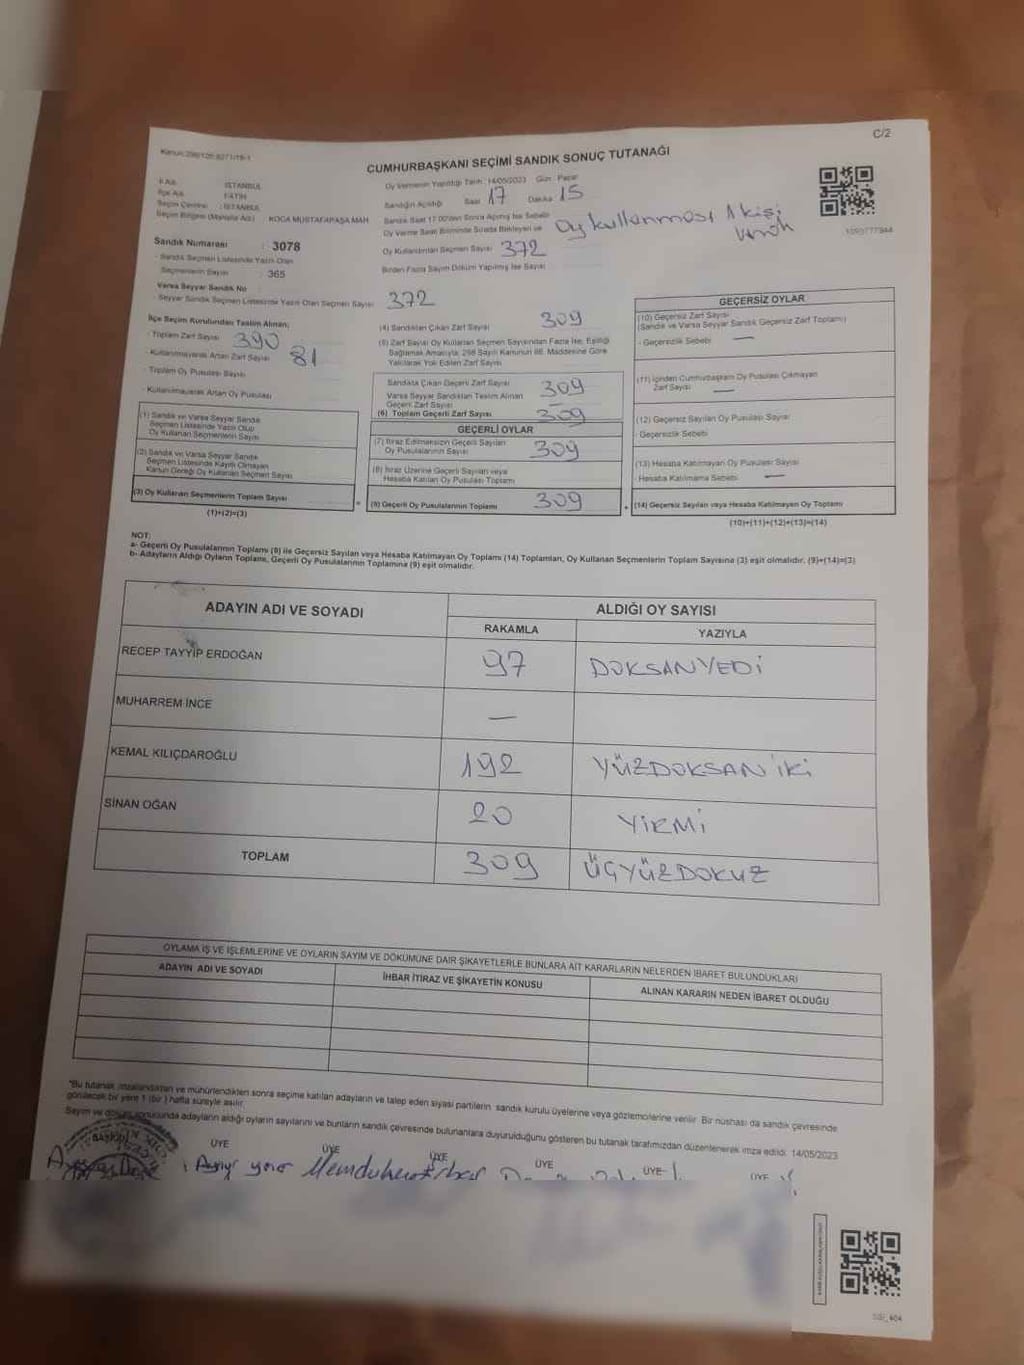 C/2
CUMHURBAŞKANI SEÇİMİ SANDIK SONUÇ TUTANAĞI
İl Adı : İSTANBUL
İlçe Adı : FATİH
Seçim Çevresi : İSTANBUL
Seçim Bölgesi (Mahalle Adı) : KOCA MUSTAFAPAŞA MAH
Sandık Numarası : 3078
- Sandık Seçmen Listesinde Yazılı Olan
Seçmenlerin Sayısı : 365
Varsa Seyyar Sandık No
- Seyyar Sandık Seçmen Listesinde Yazılı Olan Seçmen Sayısı 372
Oy Vermenin Yapıldığı Tarih : 14/05/2023 Gün : Pazar
Sandığın Açıldığı Saat 17 Dakika 15
Sandık Saat 17.00'den Sonra Açılmış İse Sebebi
Oy Verme Saati Bitiminde Sırada Bekleyen ve Oy kullanması 1 kişi
Oy Kullandırılan Seçmen Sayısı 372
Birden Fazla Sayım Döküm Yapılmış İse Sayısı
1093777944
İlçe Seçim Kurulundan Teslim Alınan;
- Toplam Zarf Sayısı 390
- Kullanılmayarak Artan Zarf Sayısı 81
- Toplam Oy Pusulası Sayısı
- Kullanılmayarak Artan Oy Pusulası
(1) Sandık ve Varsa Seyyar Sandık
Seçmen Listesinde Yazılı Olup
Oy Kullanan Seçmenlerin Sayısı
(2) Sandık ve Varsa Seyyar Sandık
Seçmen Listesinde Kayıtlı Olmayan
Kanun Gereği Oy Kullanan Seçmen Sayısı
(3) Oy Kullanan Seçmenlerin Toplam Sayısı
(1)+(2)=(3)
(4) Sandıktan Çıkan Zarf Sayısı 309
(5) Zarf Sayısı Oy Kullanan Seçmen Sayısından Fazla İse, Eşitliği
Sağlamak Amacıyla, 298 Sayılı Kanunun 98. Maddesine Göre
Yakılarak Yok Edilen Zarf Sayısı
Sandıkta Çıkan Geçerli Zarf Sayısı 309
Varsa Seyyar Sandıktan Teslim Alınan
Geçerli Zarf Sayısı –
(6) Toplam Geçerli Zarf Sayısı 309
GEÇERLİ OYLAR
(7) İtiraz Edilmeksizin Geçerli Sayılan
Oy Pusulalarının Sayısı 309
(8) İtiraz Üzerine Geçerli Sayılan veya
Hesaba Katılan Oy Pusulası Toplamı
(9) Geçerli Oy Pusulalarının Toplamı 309
GEÇERSİZ OYLAR
(10) Geçersiz Zarf Sayısı
(Sandık ve Varsa Seyyar Sandık Geçersiz Zarf Toplamı)
- Geçersizlik Sebebi —
(11) İçinden Cumhurbaşkanı Oy Pusulası Çıkmayan
Zarf Sayısı —
(12) Geçersiz Sayılan Oy Pusulası Sayısı
- Geçersizlik Sebebi
(13) Hesaba Katılmayan Oy Pusulası Sayısı
- Hesaba Katılmama Sebebi —
(14) Geçersiz Sayılan veya Hesaba Katılmayan Oy Toplamı
(10)+(11)+(12)+(13)=(14)
NOT:
a- Geçerli Oy Pusulalarının Toplamı (9) ile Geçersiz Sayılan veya Hesaba Katılmayan Oy Toplamı (14) Toplamları, Oy Kullanan Seçmenlerin Toplam Sayısına (3) eşit olmalıdır. (9)+(14)=(3)
b- Adayların Aldığı Oyların Toplamı, Geçerli Oy Pusulalarının Toplamına (9) eşit olmalıdır.
ADAYIN ADI VE SOYADI ALDIĞI OY SAYISI
RAKAMLA YAZIYLA
RECEP TAYYİP ERDOĞAN 97 DOKSANYEDİ
MUHARREM İNCE —
KEMAL KILIÇDAROĞLU 192 YÜZDOKSAN İKİ
SİNAN OĞAN 20 YİRMİ
TOPLAM 309 ÜÇYÜZDOKUZ
OYLAMA İŞ VE İŞLEMLERİNE VE OYLARIN SAYIM VE DÖKÜMÜNE DAİR ŞİKAYETLERLE BUNLARA AİT KARARLARIN NELERDEN İBARET BULUNDUKLARI
ADAYIN ADI VE SOYADI İHBAR İTİRAZ VE ŞİKAYETİN KONUSU ALINAN KARARIN NEDEN İBARET OLDUĞU
*Bu tutanak imzalandıktan ve mühürlendikten sonra seçime katılan adayların ve talep eden siyasi partilerin sandık kurulu üyelerine veya gözlemcilerine verilir. Bir nüshası da sandık çevresinde
görülecek bir yere 1 (bir) hafta süreyle asılır.
Sayım ve döküm sonucunda adayların aldığı oyların sayılarını ve bunların sandık çevresinde bulunanlara duyurulduğunu gösteren bu tutanak tarafımızdan düzenlenerek imza edildi. 14/05/2023
ÜYE ÜYE ÜYE ÜYE ÜYE ÜYE